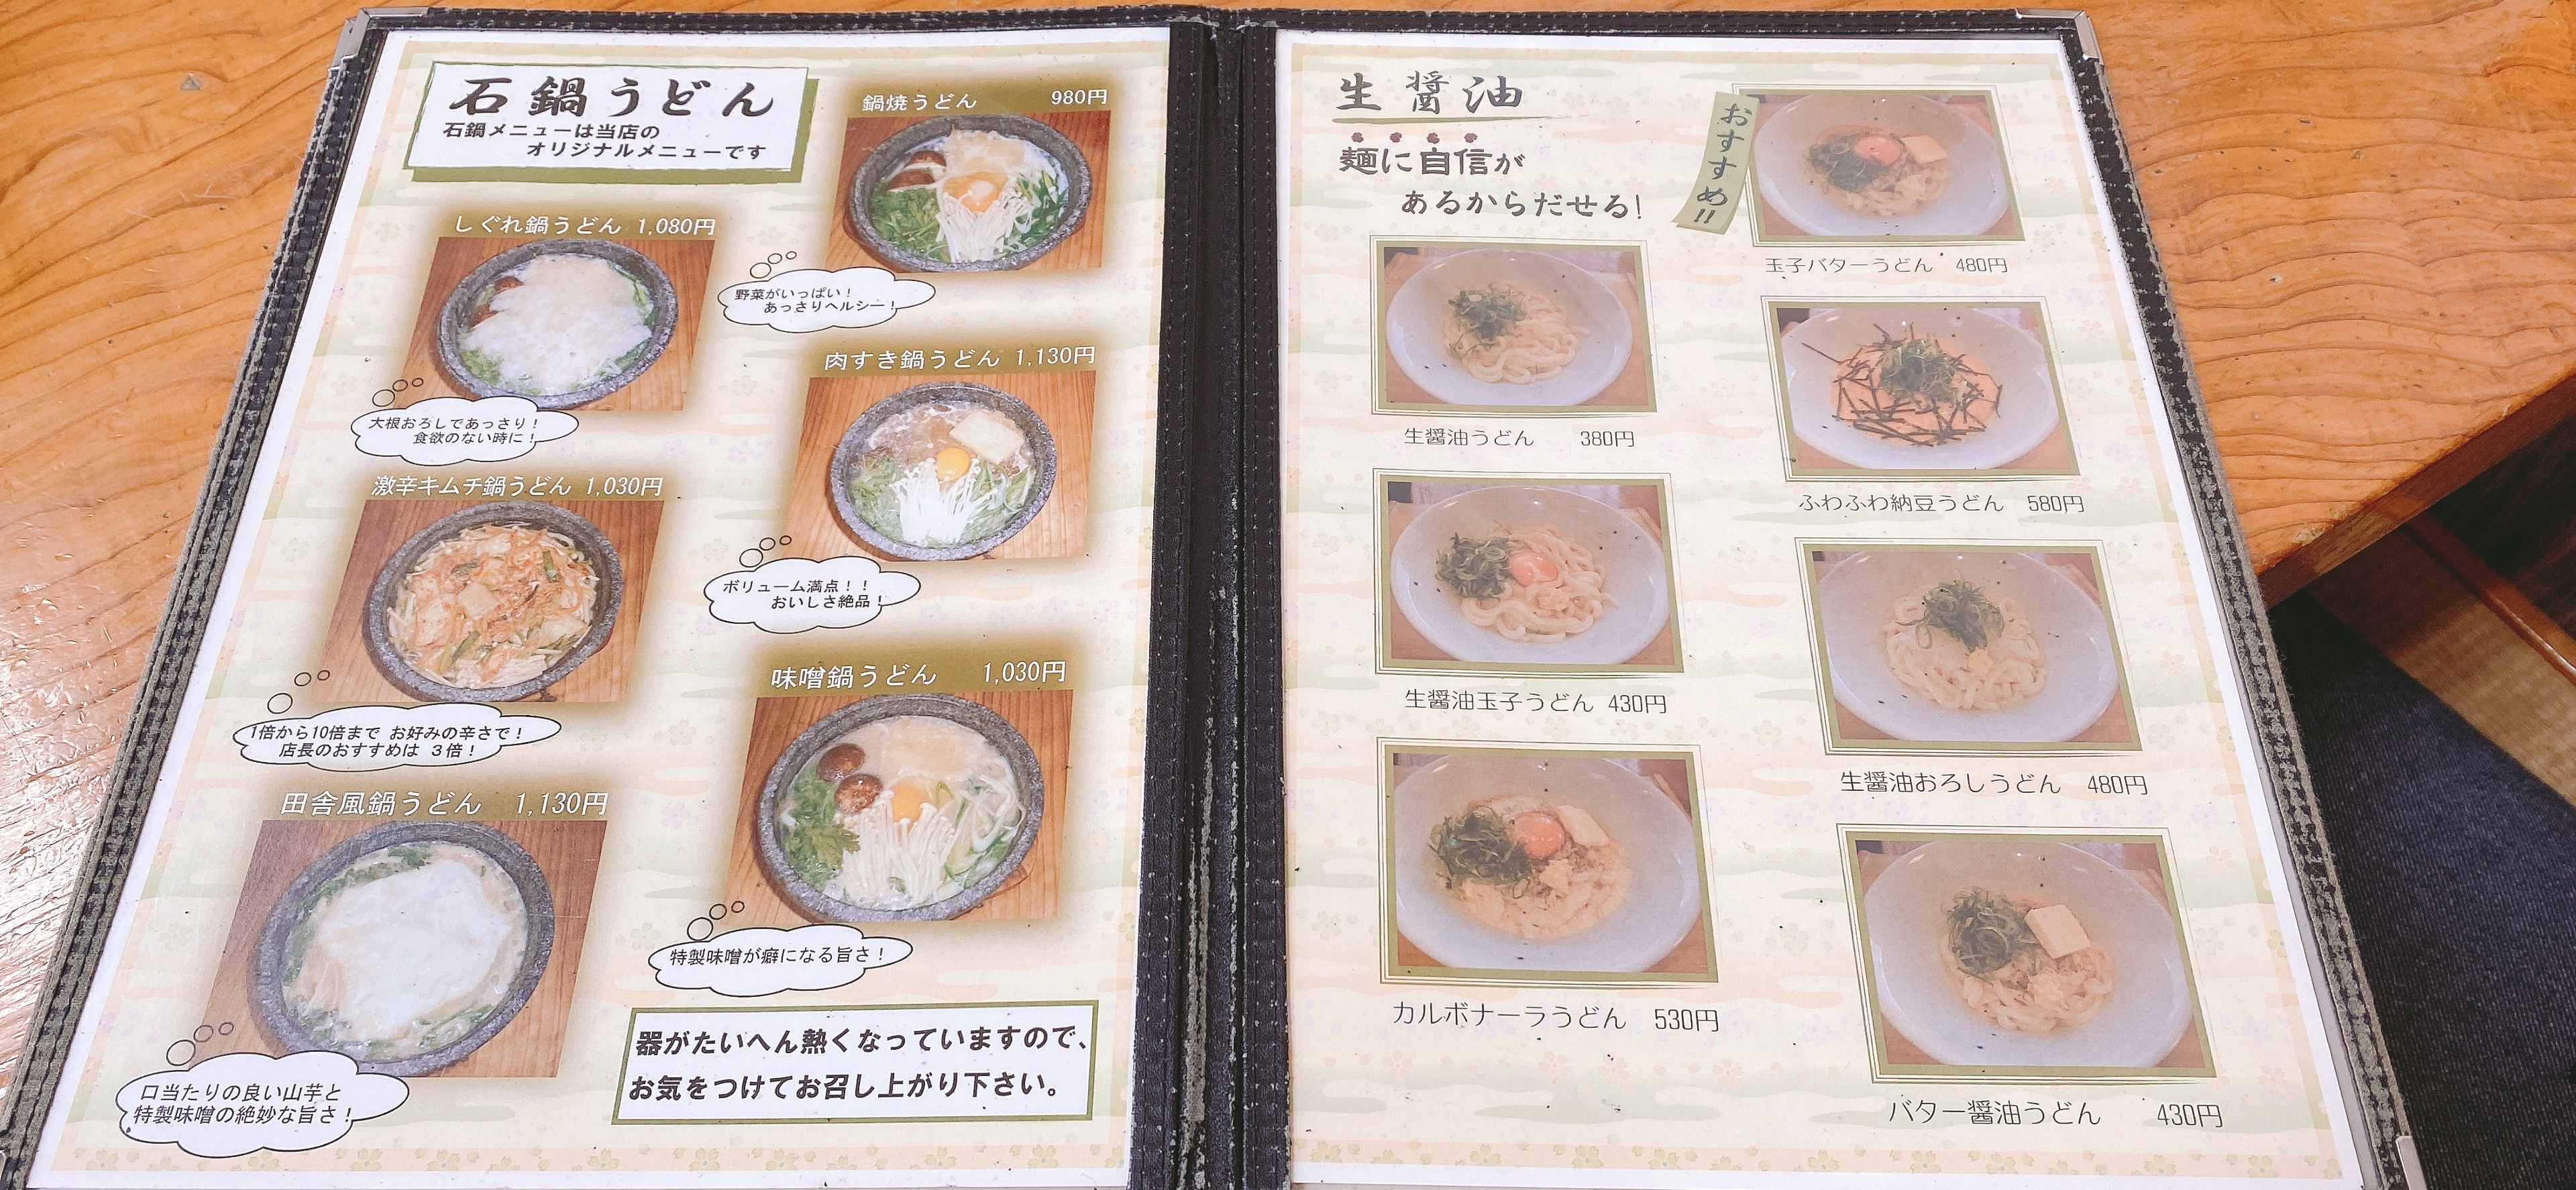 石鍋うどん
石鍋メニューは当店の
オリジナルメニューです
鍋焼うどん 980円
野菜がいっぱい！
あっさりヘルシー！
しぐれ鍋うどん 1,080円
大根おろしであっさり！
食欲のない時に！
肉すき鍋うどん 1,130円
ボリューム満点！！
おいしさ絶品！
激辛キムチ鍋うどん 1,030円
1倍から10倍まで お好みの辛さで！
店長のおすすめは 3倍！
味噌鍋うどん 1,030円
特製味噌が癖になる旨さ！
田舎風鍋うどん 1,130円
口当たりの良い山芋と
特製味噌の絶妙な旨さ！
器がたいへん熱くなっていますので、
お気をつけてお召し上がり下さい。
生醤油
麺に自信が
あるからだせる！
おすすめ!!
玉子バターうどん 480円
生醤油うどん 380円
ふわふわ納豆うどん 580円
生醤油玉子うどん 430円
生醤油おろしうどん 480円
カルボナーラうどん 530円
バター醤油うどん 430円